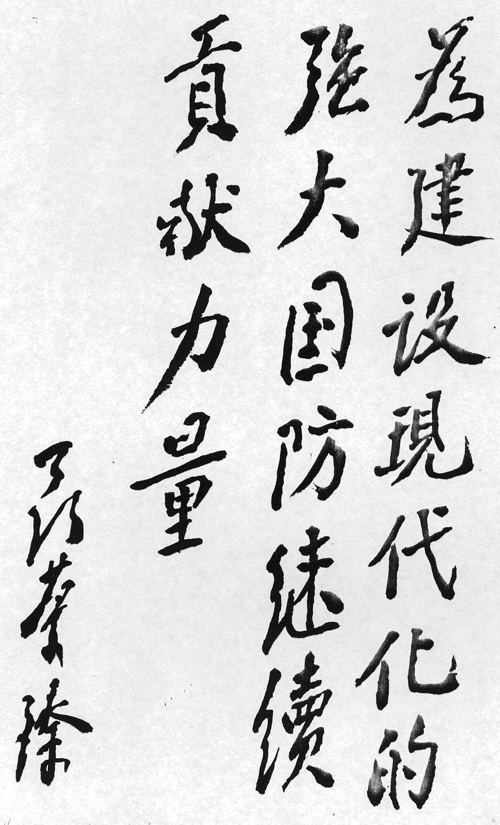 為建设現代化的
强大国防继續
貢献力量
蔡